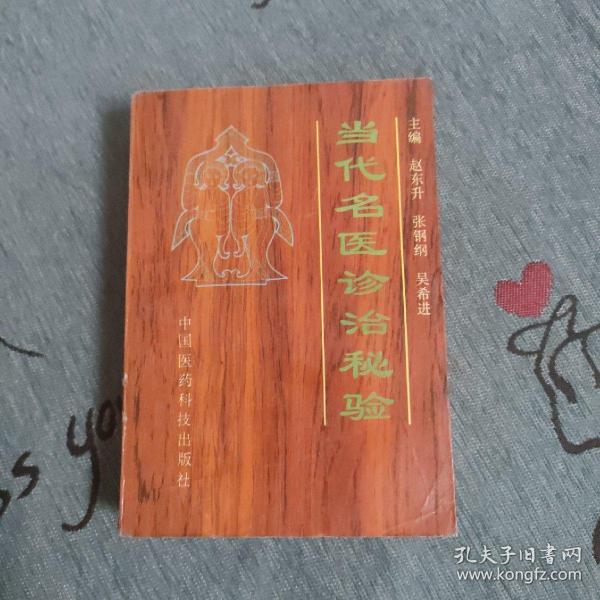 主编 赵东升 张钢纲 吴希进
当代名医诊治秘验
中国医药科技出版社
ss you
孔夫子旧书网
www.kongfz.com